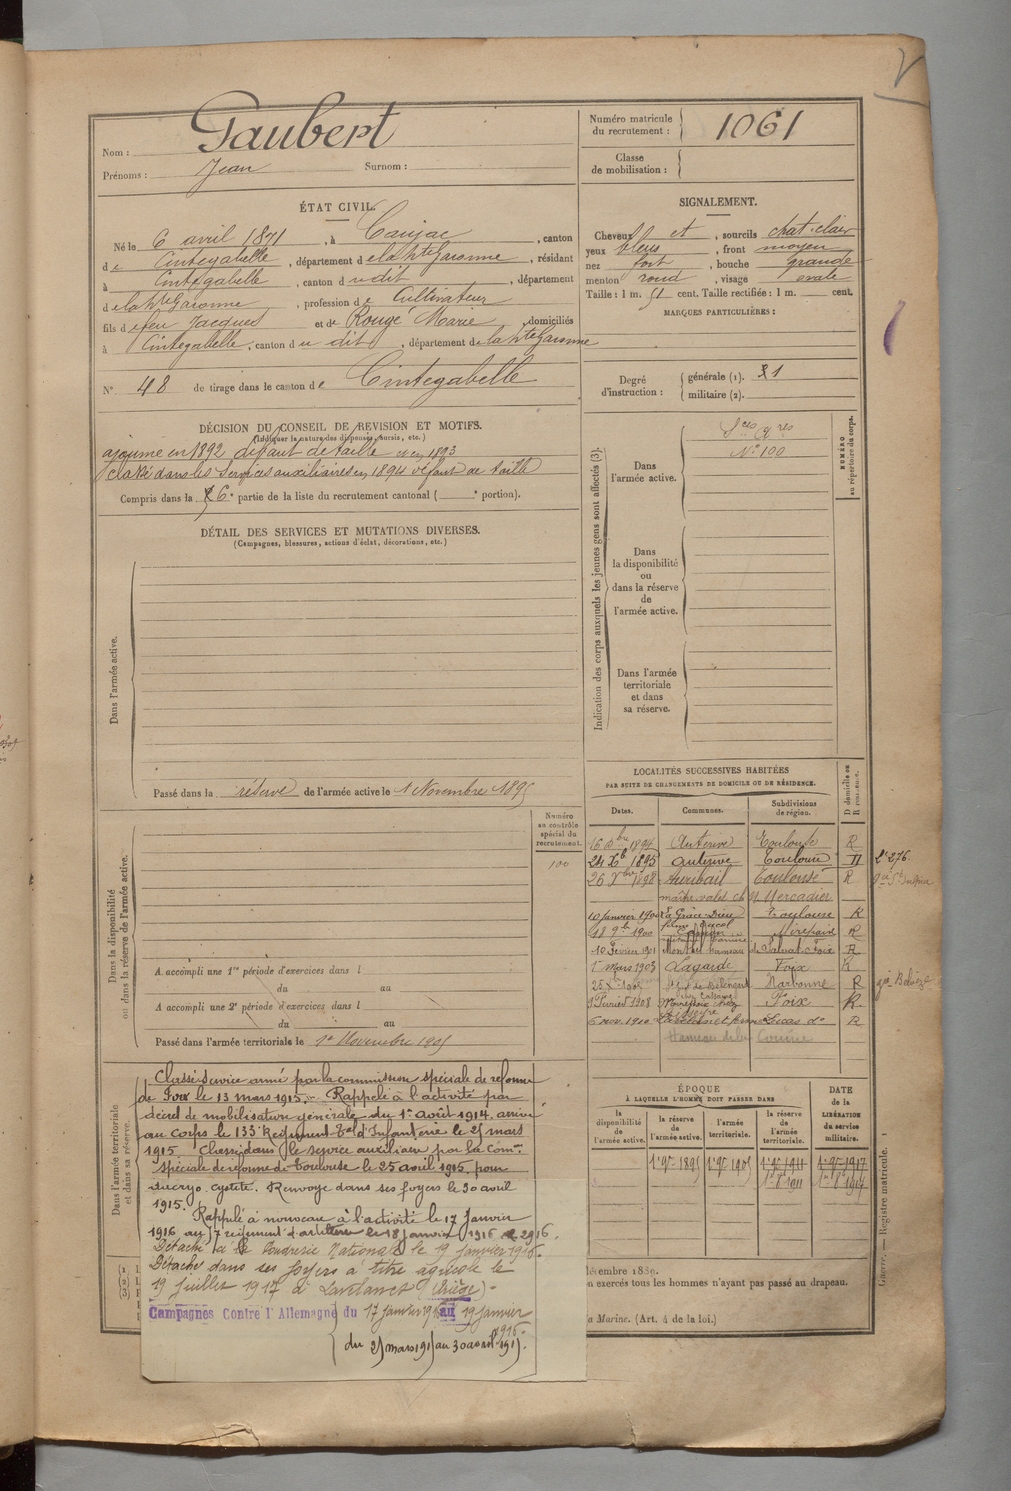 Nom : Gaubert
Prénoms : Jean Surnom :
Numéro matricule du recrutement : 1061
Classe de mobilisation :
ÉTAT CIVIL.
Né le 6 avril 1871, à Caujac, canton
de Cintegabelle, département de la Hte Garonne, résidant
à Cintegabelle, canton du dit, département
de la Hte Garonne, profession de Cultivateur
fils de feu Jacques et de Rougé Marie, domiciliés
à Cintegabelle, canton du dit, département de la Hte Garonne
N° 48 de tirage dans le canton de Cintegabelle
SIGNALEMENT.
Cheveux et, sourcils chat. clair
yeux bleus, front moyen
nez fort, bouche grande
menton rond, visage ovale
Taille : 1 m. 51 cent. Taille rectifiée : 1 m. cent.
MARQUES PARTICULIÈRES :
Degré d'instruction : générale (1). 1
militaire (2).
DÉCISION DU CONSEIL DE REVISION ET MOTIFS.
(Indiquer la nature des dispenses, sursis, etc.)
ajourné en 1892 défaut de taille et en 1893
classé dans les services auxiliaires en 1894 défaut de taille
Compris dans la 6e partie de la liste du recrutement cantonal ( e portion).
DÉTAIL DES SERVICES ET MUTATIONS DIVERSES.
(Campagnes, blessures, actions d'éclat, décorations, etc.)
Dans l'armée active.
Passé dans la réserve de l'armée active le 1 Novembre 1895
Indication des corps auxquels les jeunes gens sont affectés (3).
NUMÉRO au répertoire du corps.
Dans l'armée active.
Sces Ares
N° 100
Dans la disponibilité ou dans la réserve de l'armée active.
Dans l'armée territoriale et dans sa réserve.
Dans la disponibilité ou dans la réserve de l'armée active.
Numéro au contrôle spécial du recrutement.
100
A accompli une 1re période d'exercices dans l
du au
A accompli une 2e période d'exercices dans l
du au
Passé dans l'armée territoriale le 1er Novembre 1905
LOCALITÉS SUCCESSIVES HABITÉES
PAR SUITE DE CHANGEMENTS DE DOMICILE OU DE RÉSIDENCE.
Dates. Communes. Subdivisions de région. D domicile ou R résidence.
16 Xbre 1894 Auterive Toulouse R
24 Xb 1895 Auterive Toulouse D
26 Xbre 1898 Auribail Toulouse R
maître valet ch. Mr Mercadier
10 janvier 1900 La Grâce-Dieu Toulouse R
18 9b 1900 Mirepoix R
10 Fevrier 1901 Foix R
1er mars 1903 Lagarde Foix R
25 Xbre 1905 Narbonne R
1 Fevrier 1908 Foix R
6 nov. 1910 R
Dans l'armée territoriale et dans sa réserve.
Classé Service armé par la commission spéciale de réforme
de Foix le 13 mars 1915. Rappelé à l'activité par
décret de mobilisation générale du 1er août 1914, arrivé
au corps le 133e Régiment Tal d'Infanterie le 25 mars
1915. Classé dans le service auxiliaire par la Comon
spéciale de réforme de Toulouse le 25 avril 1915, pour
dacryo. cystite. Renvoyé dans ses foyers le 30 avril
1915.
Rappelé à nouveau à l'activité le 17 Janvier
1916 au 57 régiment d'artillerie le 18 janvier 1916
Détaché à la Poudrerie Nationale le 19 janvier 1916.
Détaché dans ses foyers à titre agricole le
19 juillet 1917 à (Ariège)
Campagnes Contre l'Allemagne du 17 janvier 1916 au 19 janvier
1916.
du 25 mars 1915 au 30 avril 1915.
ÉPOQUE
À LAQUELLE L'HOMME DOIT PASSER DANS
la disponibilité de l'armée active. la réserve de l'armée active. l'armée territoriale. la réserve de l'armée territoriale.
DATE de la LIBÉRATION du service militaire.
1er 9bre 1895 1er 9bre 1905 1er 9bre 1911 1er 9bre 1917
décembre 1889.
on exercés tous les hommes n'ayant pas passé au drapeau.
la Marine. (Art. 4 de la loi.)
Guerre. — Registre matricule. 1